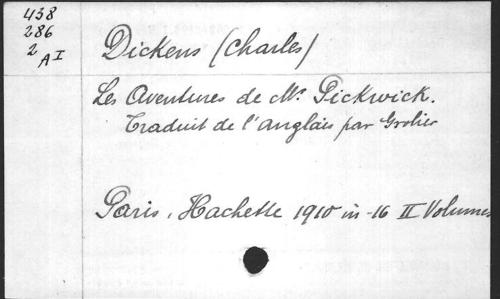 438
286
2
A I
Dickens (Charles)
Les Aventures de Mr. Pickwick.
Traduit de l'anglais par Grolier
Paris, Hachette 1910 in-16 II Volumes